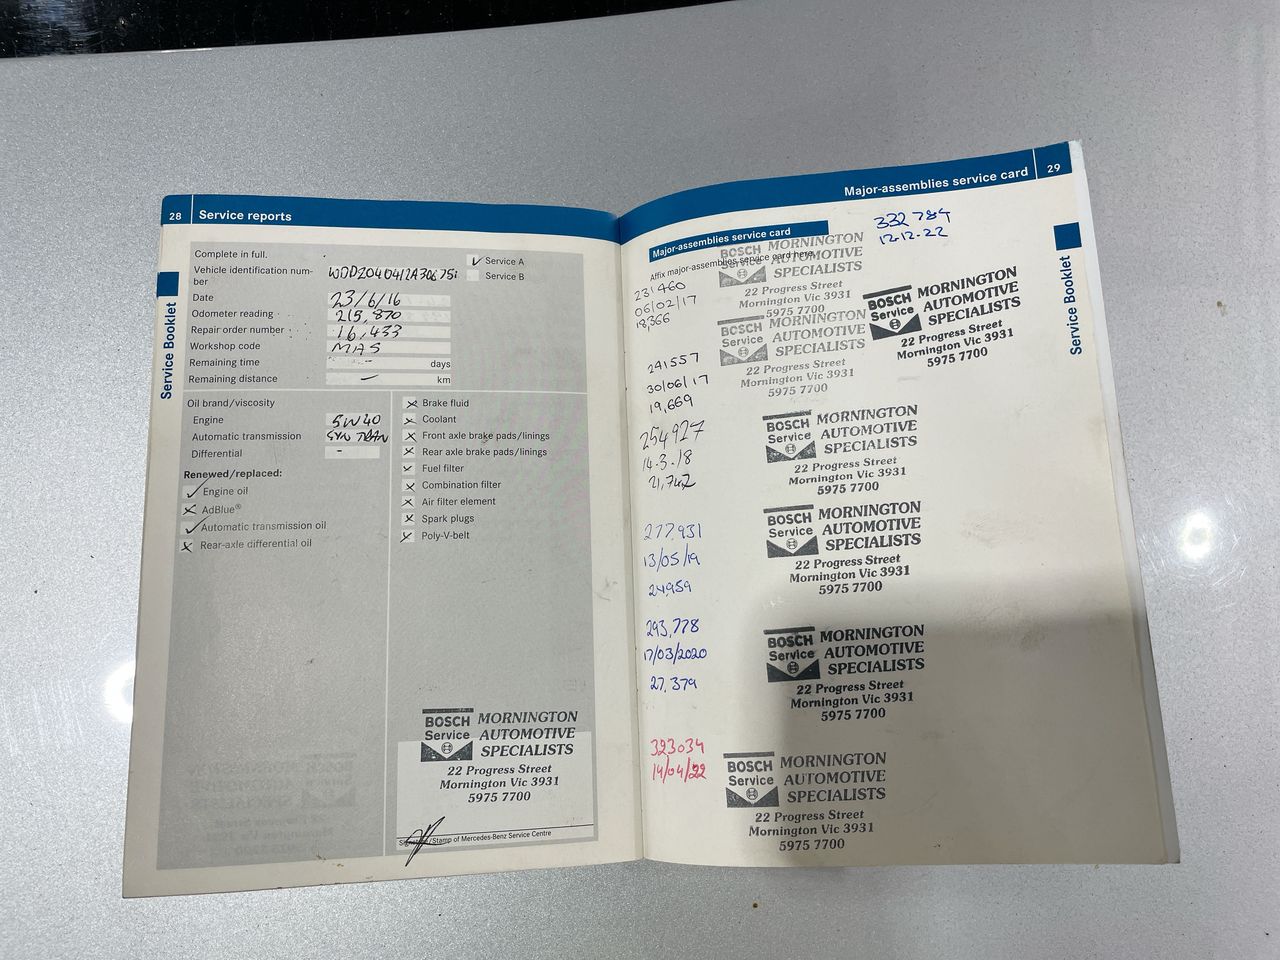 28 Service reports
Service Booklet
Complete in full.
✓ Service A
Service B
Vehicle identification num-
ber WDD2040412A306751
Date 23/6/16
Odometer reading 215,870
Repair order number 16,433
Workshop code MAS
Remaining time - days
Remaining distance - km
Oil brand/viscosity
Engine 5W40
Automatic transmission SYN TRAN
Differential -
Renewed/replaced:
✓ Engine oil
✗ AdBlue®
✓ Automatic transmission oil
✗ Rear-axle differential oil
✗ Brake fluid
✗ Coolant
✗ Front axle brake pads/linings
✗ Rear axle brake pads/linings
✓ Fuel filter
✗ Combination filter
✗ Air filter element
✗ Spark plugs
✗ Poly-V-belt
BOSCH Service MORNINGTON
AUTOMOTIVE
SPECIALISTS
22 Progress Street
Mornington Vic 3931
5975 7700
Signature/Stamp of Mercedes-Benz Service Centre
Major-assemblies service card 29
Service Booklet
Major-assemblies service card
Affix major-assemblies service card here.
332784
12.12.22
BOSCH Service MORNINGTON
AUTOMOTIVE
SPECIALISTS
22 Progress Street
Mornington Vic 3931
5975 7700
231460
06/02/17
18,366
BOSCH Service MORNINGTON
AUTOMOTIVE
SPECIALISTS
22 Progress Street
Mornington Vic 3931
5975 7700
241557
30/06/17
19,669
BOSCH Service MORNINGTON
AUTOMOTIVE
SPECIALISTS
22 Progress Street
Mornington Vic 3931
5975 7700
254927
14.3.18
21,742
BOSCH Service MORNINGTON
AUTOMOTIVE
SPECIALISTS
22 Progress Street
Mornington Vic 3931
5975 7700
277,931
13/05/19
24,959
BOSCH Service MORNINGTON
AUTOMOTIVE
SPECIALISTS
22 Progress Street
Mornington Vic 3931
5975 7700
293,778
17/03/2020
27,379
BOSCH Service MORNINGTON
AUTOMOTIVE
SPECIALISTS
22 Progress Street
Mornington Vic 3931
5975 7700
323034
14/04/22
BOSCH Service MORNINGTON
AUTOMOTIVE
SPECIALISTS
22 Progress Street
Mornington Vic 3931
5975 7700